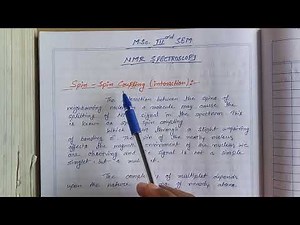 M.Sc. IIIrd SEM
NMR SPECTROSCOPY
Spin - Spin Coupling (interaction):-
The interaction between the spins of
neighbouring nuclei in a molecule may cause the
splitting of the signal in the spectrum. This
is known as spin spin coupling
which through a slight unpairing
of bonding of the nearby
affects the magnetic environment of the nucleus we
are observing and signal is not a simple
singlet but a mul
The complexity of multiplet depends
upon the nature of nearby atoms